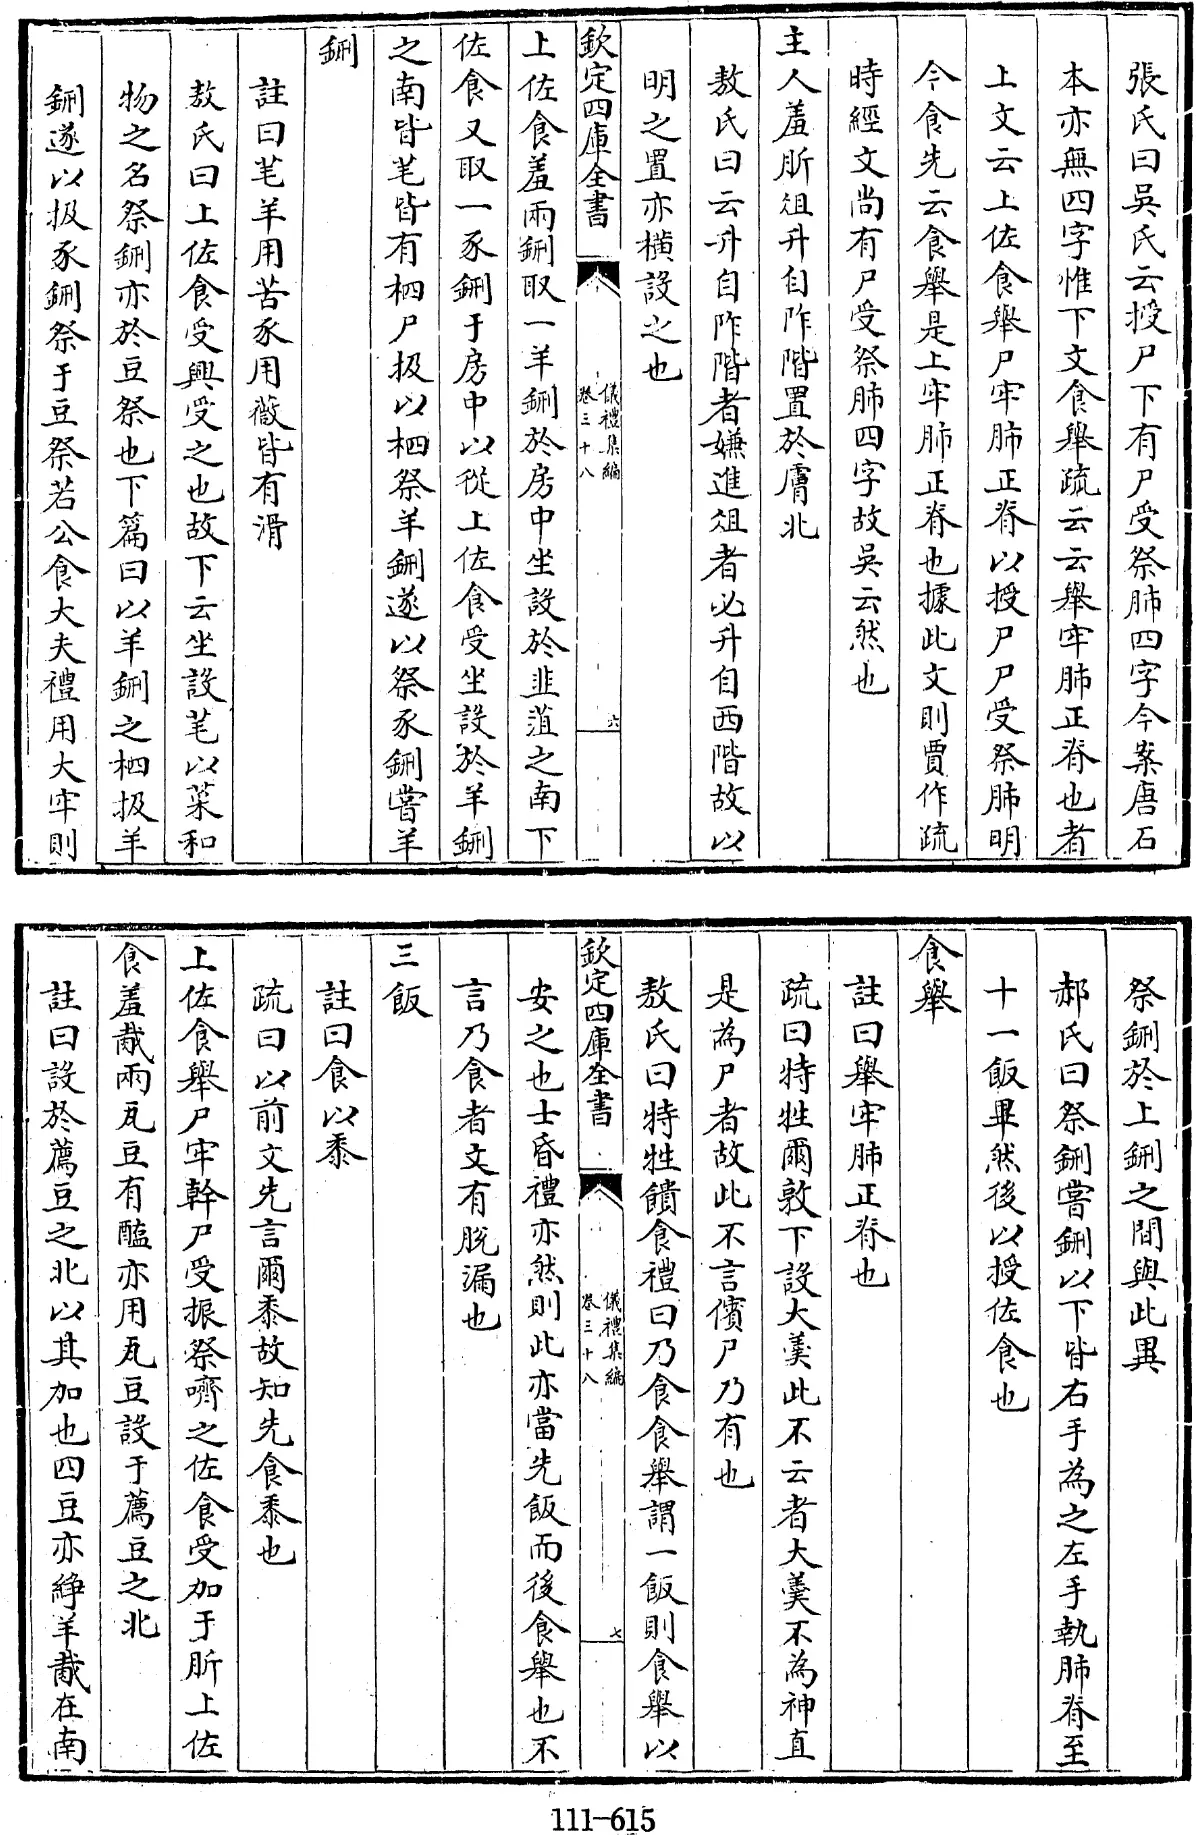 張氏曰吳氏云授尸下有尸受祭肺四字今案唐石
本亦無四字惟下文食舉疏云云舉牢肺正脊也者
上文云上佐食舉尸牢肺正脊以授尸尸受祭肺明
今食先云食舉是上牢肺正脊也據此文則賈作疏
時經文尚有尸受祭肺四字故吳云然也
主人羞肵俎升自阼階置於膚北
敖氏曰云升自阼階者嫌進俎者必升自西階故以
明之置亦橫設之也
欽定四庫全書
儀禮集編
卷三十八
六
上佐食羞兩鉶取一羊鉶於房中坐設於韭菹之南下
佐食又取一豕鉶于房中以從上佐食受坐設於羊鉶
之南皆芼皆有柶尸扱以柶祭羊鉶遂以祭豕鉶嘗羊
鉶
註曰芼羊用苦豕用薇皆有滑
敖氏曰上佐食受興受之也故下云坐設芼以菜和
物之名祭鉶亦於豆祭也下篇曰以羊鉶之柶扱羊
鉶遂以扱豕鉶祭于豆祭若公食大夫禮用大牢則
祭鉶於上鉶之間與此異
郝氏曰祭鉶嘗鉶以下皆右手為之左手執肺脊至
十一飯畢然後以授佐食也
食舉
註曰舉牢肺正脊也
疏曰特牲爾敦下設大羹此不云者大羹不為神直
是為尸者故此不言儐尸乃有也
敖氏曰特牲饋食禮曰乃食食舉謂一飯則食舉以
欽定四庫全書
儀禮集編
卷三十八
七
安之也士昏禮亦然則此亦當先飯而後食舉也不
言乃食者文有脫漏也
三飯
註曰食以黍
疏曰以前文先言爾黍故知先食黍也
上佐食舉尸牢幹尸受振祭嚌之佐食受加于肵上佐
食羞胾兩瓦豆有醢亦用瓦豆設于薦豆之北
註曰設於薦豆之北以其加也四豆亦綪羊胾在南
111-615